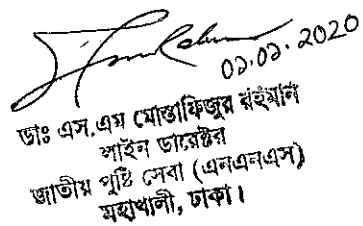 ০১.০১.2020
ডাঃ এস.এম মোস্তাফিজুর রহমান
লাইন ডারেক্টর
জাতীয় পুষ্টি সেবা (এনএনএস)
মহাখালী, ঢাকা।